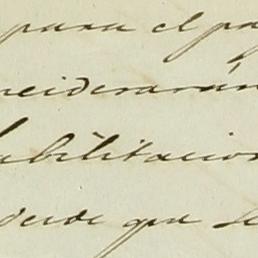 para el pa
nsiderarán
habilitacion
desde que se